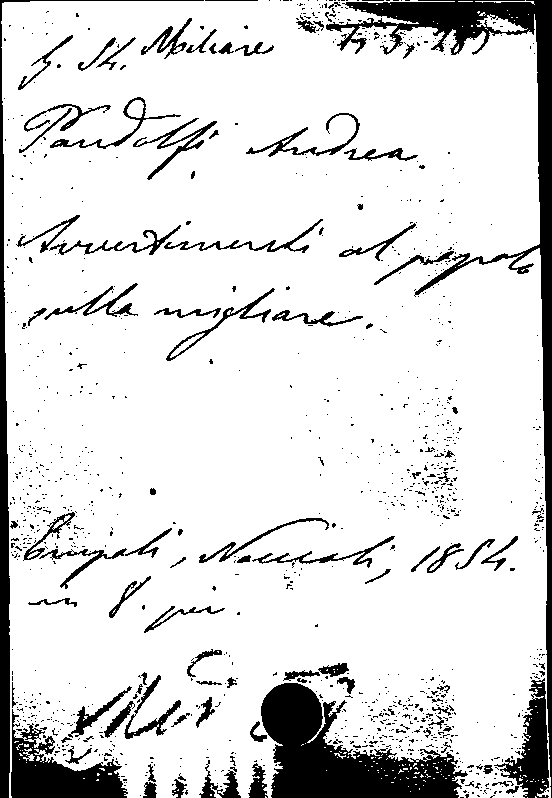 G. St. Miliare 1, 5, 289
Pandolfi Andrea.
Avvertimenti al popolo
sulla migliare.
Empoli, Noccioli, 1854.
in 8. pic.